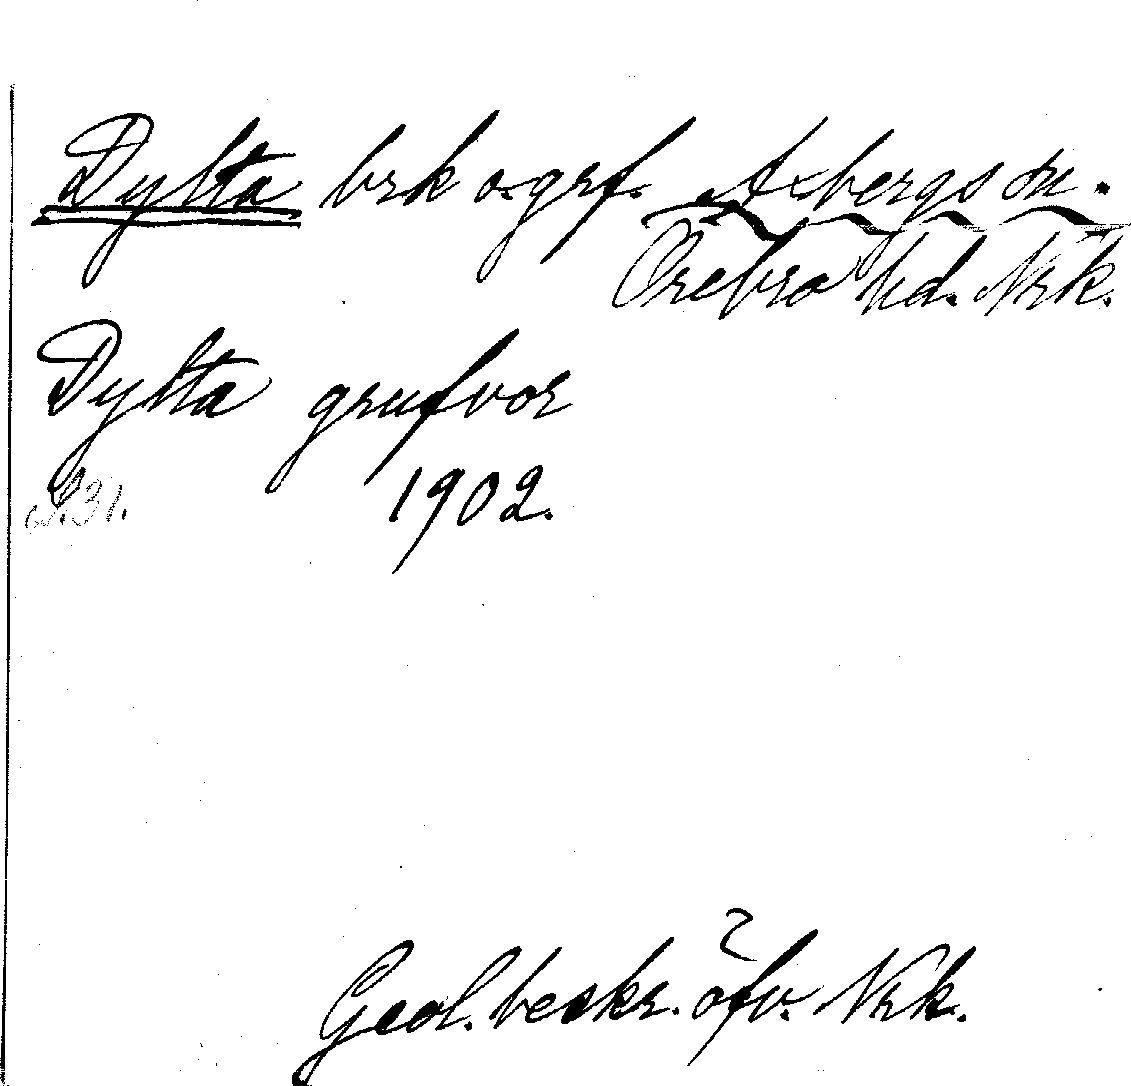 Dylta brk o. grf. Axbergs sn.
Örebro hd. Nrk.
Dylta grufvor
s. 31. 1902.
Geol. beskr. öfv. Nrk.